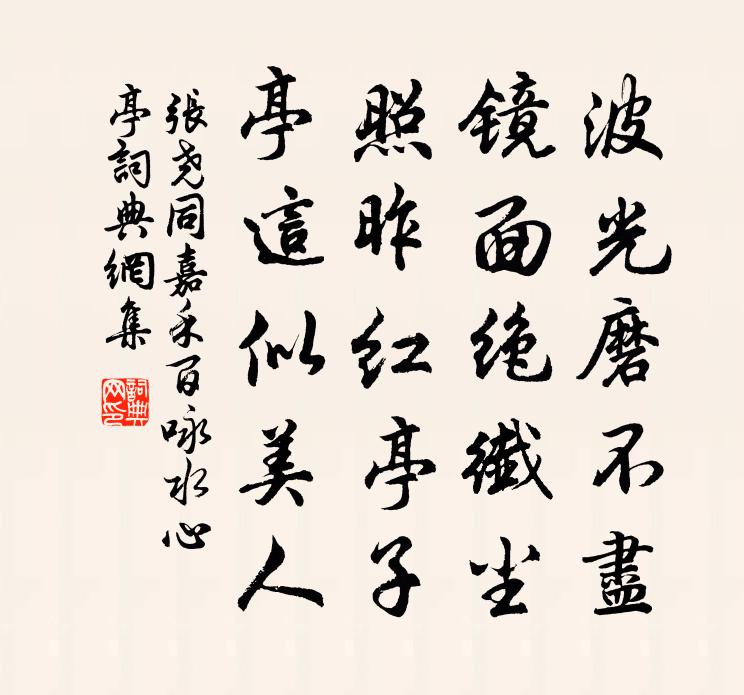 波光磨不盡
镜面绝纖尘
照昨红亭子
亭這似美人
張尧同嘉禾百咏水心
亭詞典網集
詞典网印